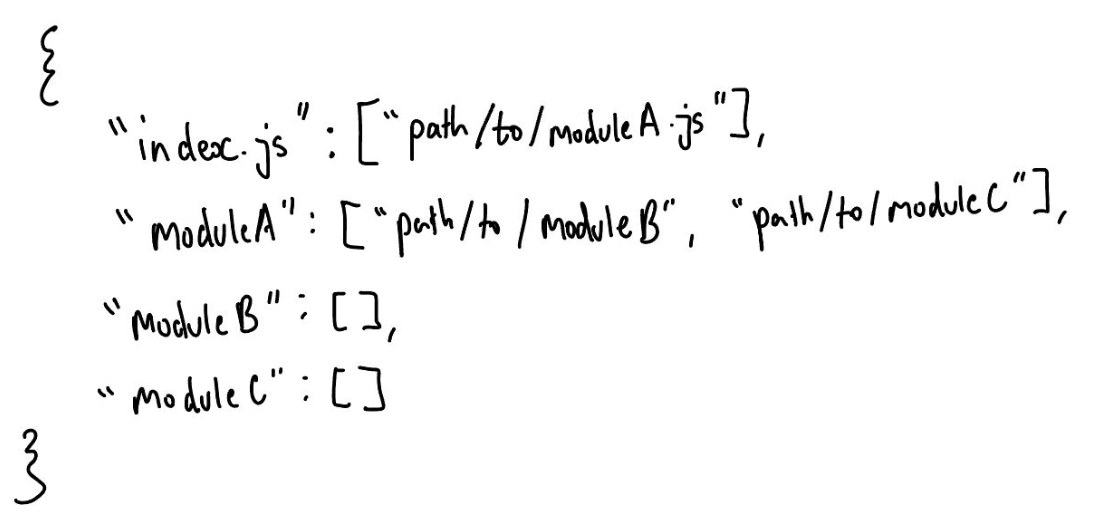 {
"index.js": ["path/to/moduleA.js"],
"moduleA": ["path/to/moduleB", "path/to/moduleC"],
"moduleB": [],
"moduleC": []
}